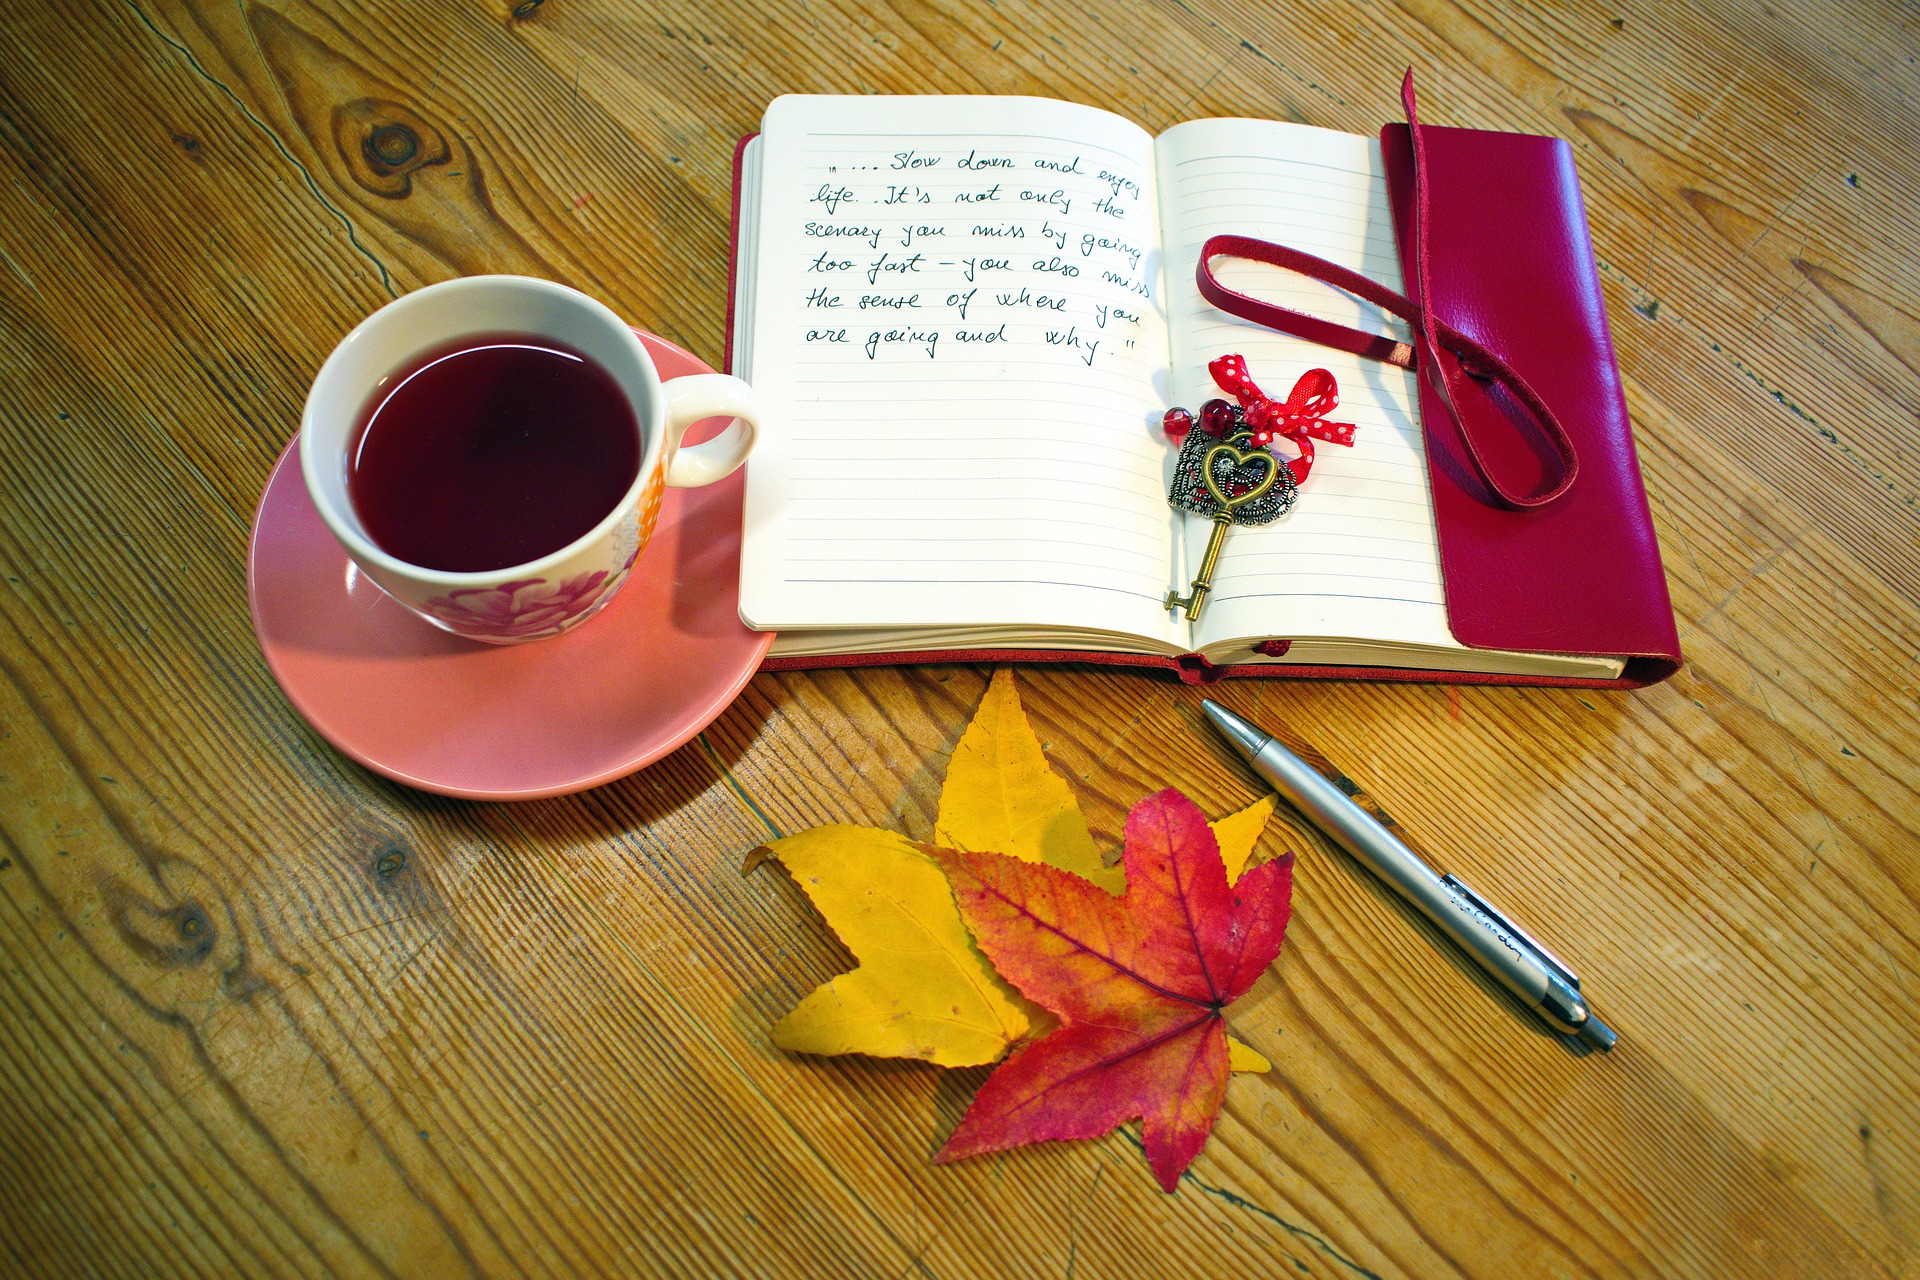 „... Slow down and enjoy
life. .It's not only the
scenary you miss by going
too fast – you also miss
the sense of where you
are going and why."
Pierre Cardin